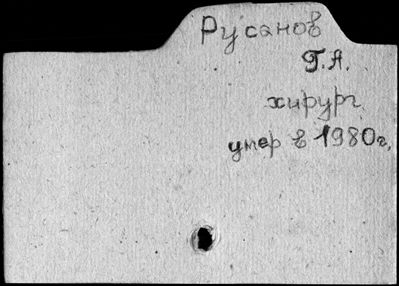 Русанов
Г.А.
хирург
умер в 1980г.